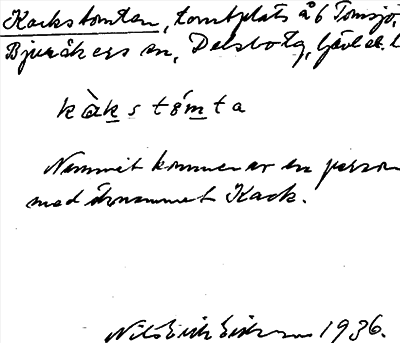 Kackstomten, tomtplats å 6 Tomsjö,
Bjuråkers sn, Delsbo tg, Gävleb. l
kàkstómta
Namnet kommer av en person
med öknamnet Kack.
Nils Erik Eriksson 1936.